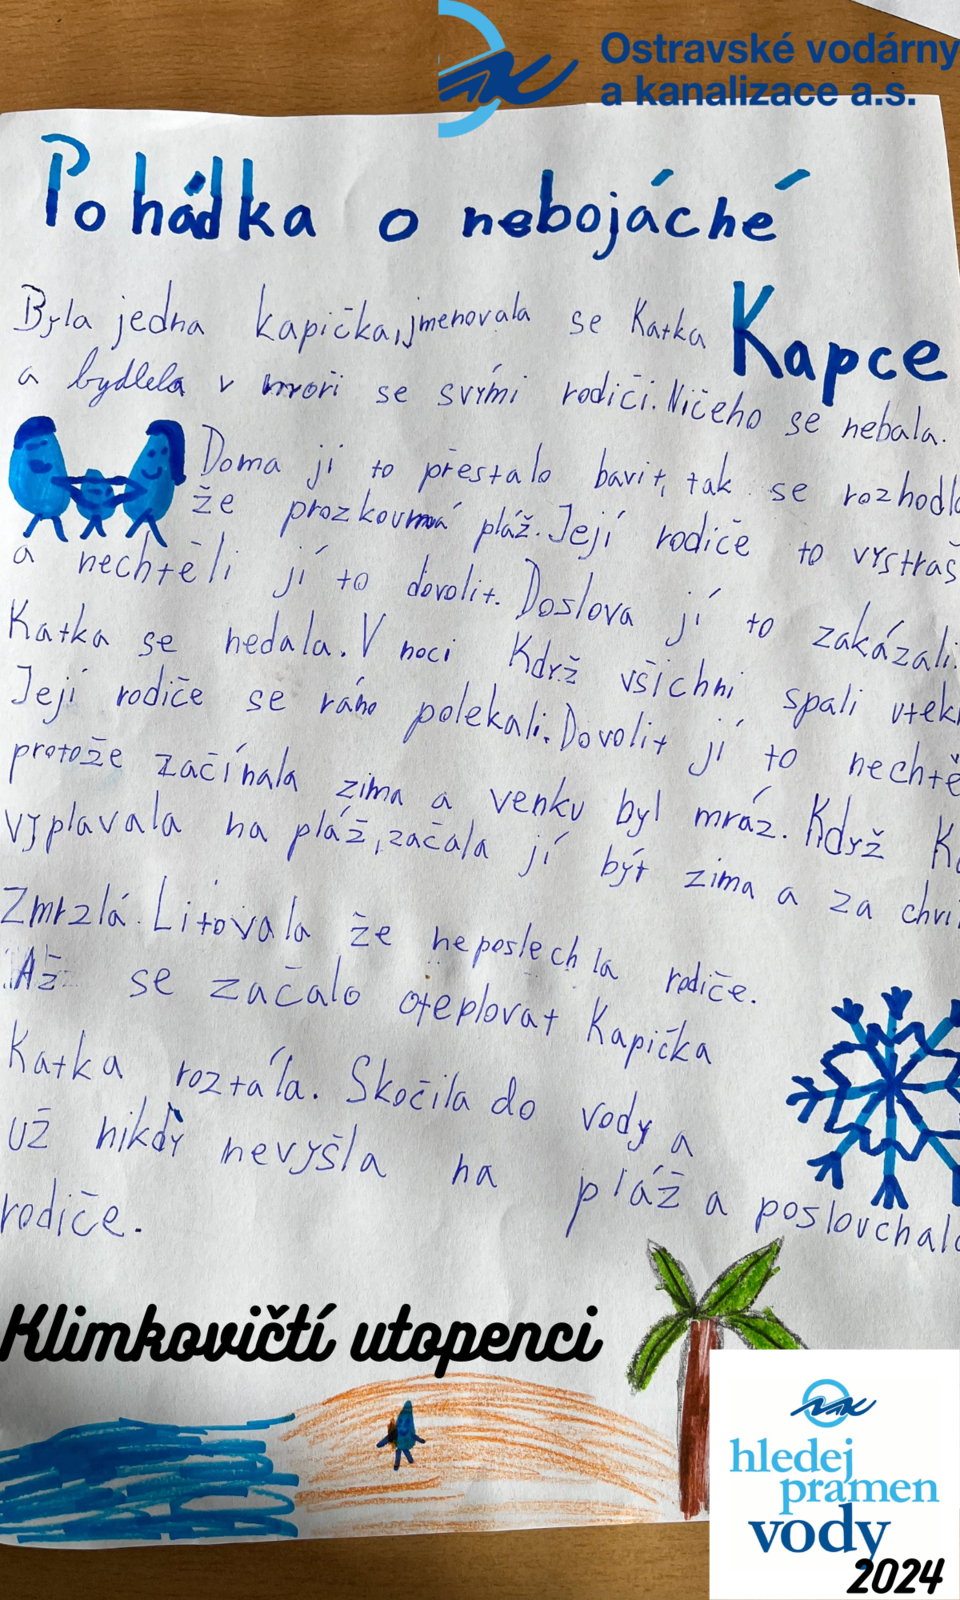 Ostravské vodárny
a kanalizace a.s.
Pohádka o nebojácné
Kapce
Byla jedna kapička, jmenovala se Katka
a bydlela v moři se svými rodiči. Ničeho se nebala.
Doma ji to přestalo bavit, tak se rozhodla
že prozkoumá pláž. Její rodiče to vystraš
a nechtěli jí to dovolit. Doslova jí to zakázali.
Katka se nedala. V noci Kdrž všichni spali utek
Její rodiče se ráno polekali. Dovolit jí to nechtě
protože začínala zima a venku byl mráz. Kdrž Ka
vyplavala na pláž, začala jí být zima a za chvi
Zmrzlá. Litovala že neposlechla rodiče.
Až se začalo oteplovat Kapička
Katka roztála. Skočila do vody a
už nikdy nevyšla na pláž a poslouchala
rodiče.
Klimkovičtí utopenci
hledej
pramen
vody
2024